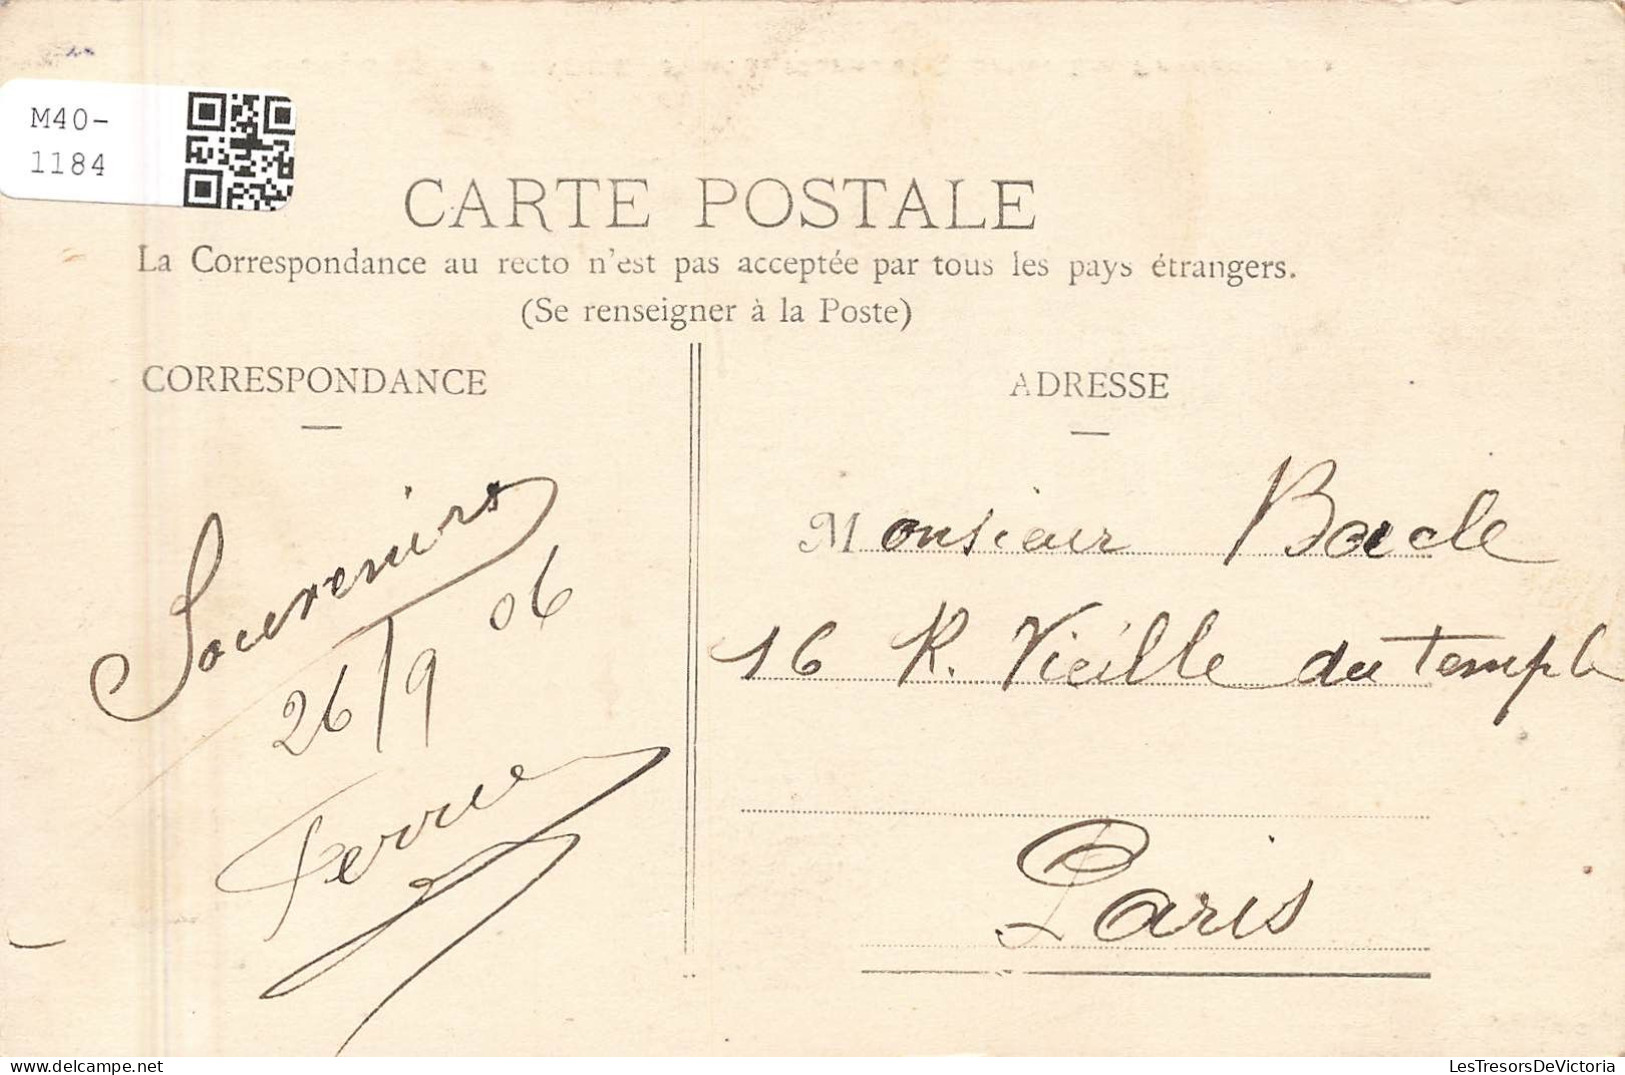 M40-
1184
CARTE POSTALE
La Correspondance au recto n'est pas acceptée par tous les pays étrangers.
(Se renseigner à la Poste)
CORRESPONDANCE
Souvenirs
26/9 06
ADRESSE
Monsieur Bacle
16 R. Vieille du Temple
Paris
LesTresorsDeVictoria